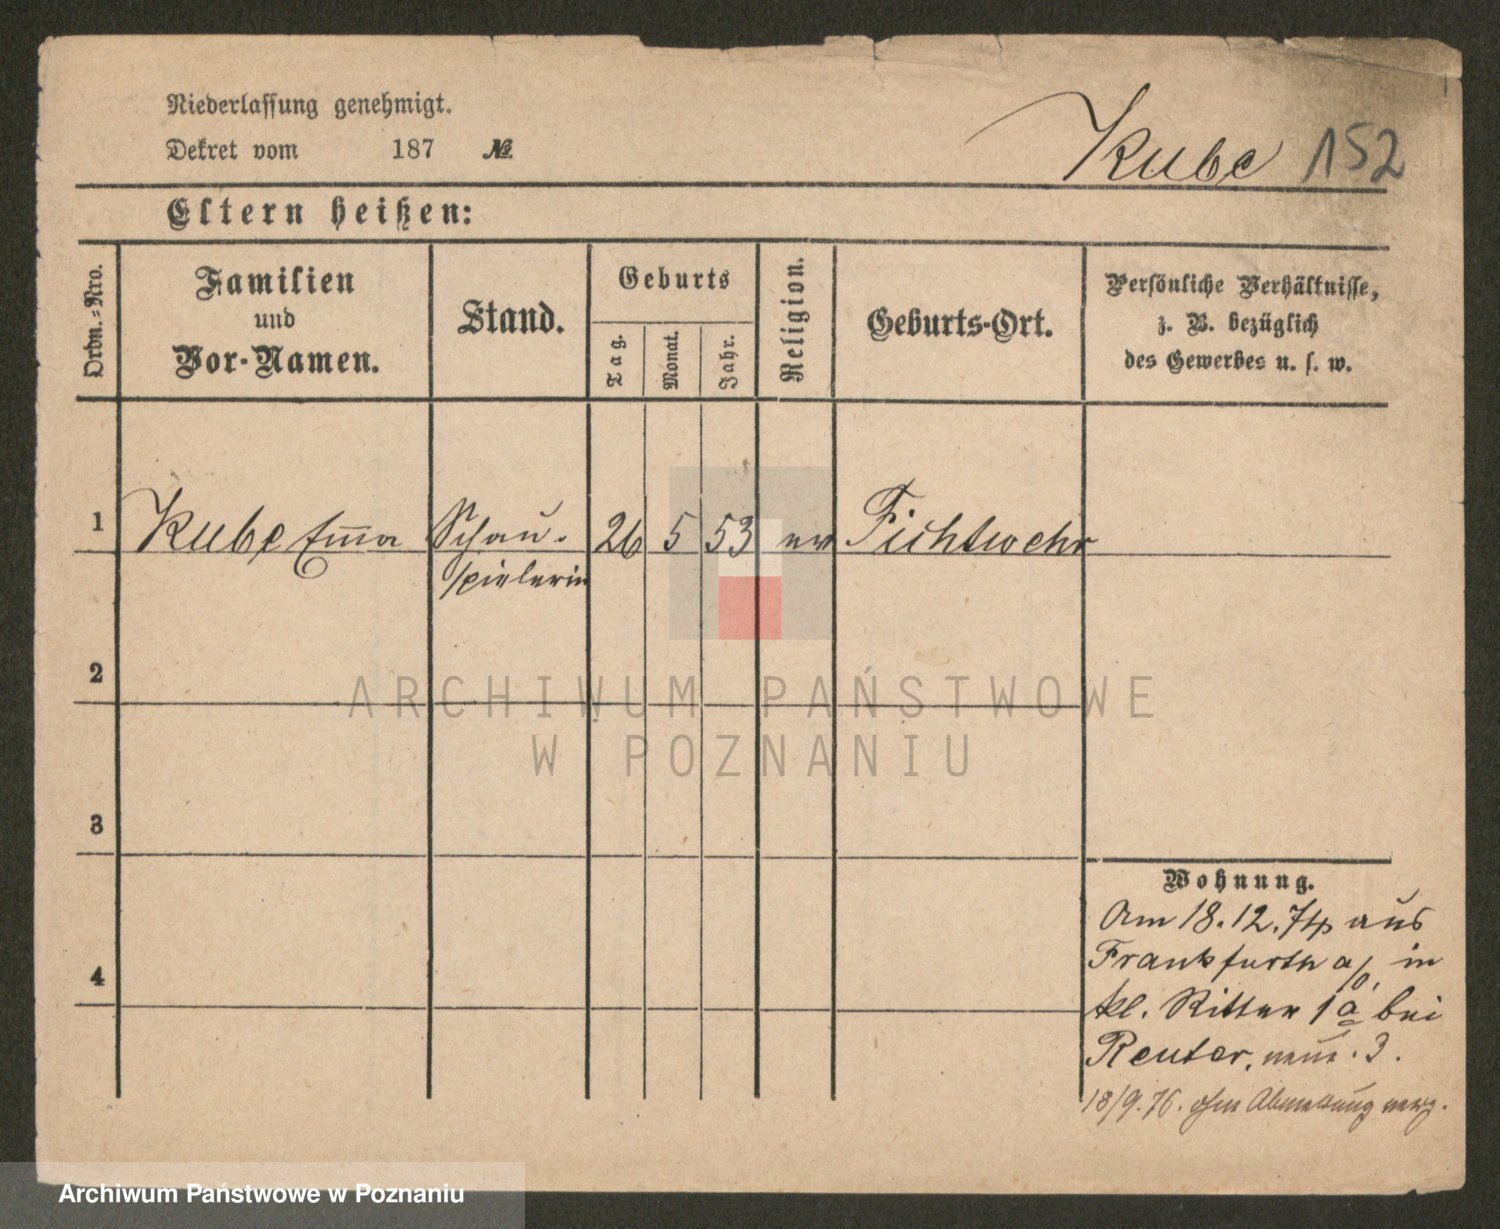 Niederlassung genehmigt.
Dekret vom 187 №
Kube 152
Eltern heißen:
Ordn.-Nro.
Familien und Vor-Namen.
Stand.
Geburts
Tag.
Monat.
Jahr.
Religion.
Geburts-Ort.
Persönliche Verhältnisse,
z. B. bezüglich
des Gewerbes u. s. w.
1 Kube Em̅a Schau- 26 5 53 ev Fichtwehr
spielerin
2
ARCHIWUM PAŃSTWOWE
W POZNANIU
3
Wohnung.
Am 18.12.74 aus
Frankfurth a/O, in
kl. Ritter 1a bei
Reuter, 3.
4
18/9.76. ohne Abmeldung verz.
Archiwum Państwowe w Poznaniu